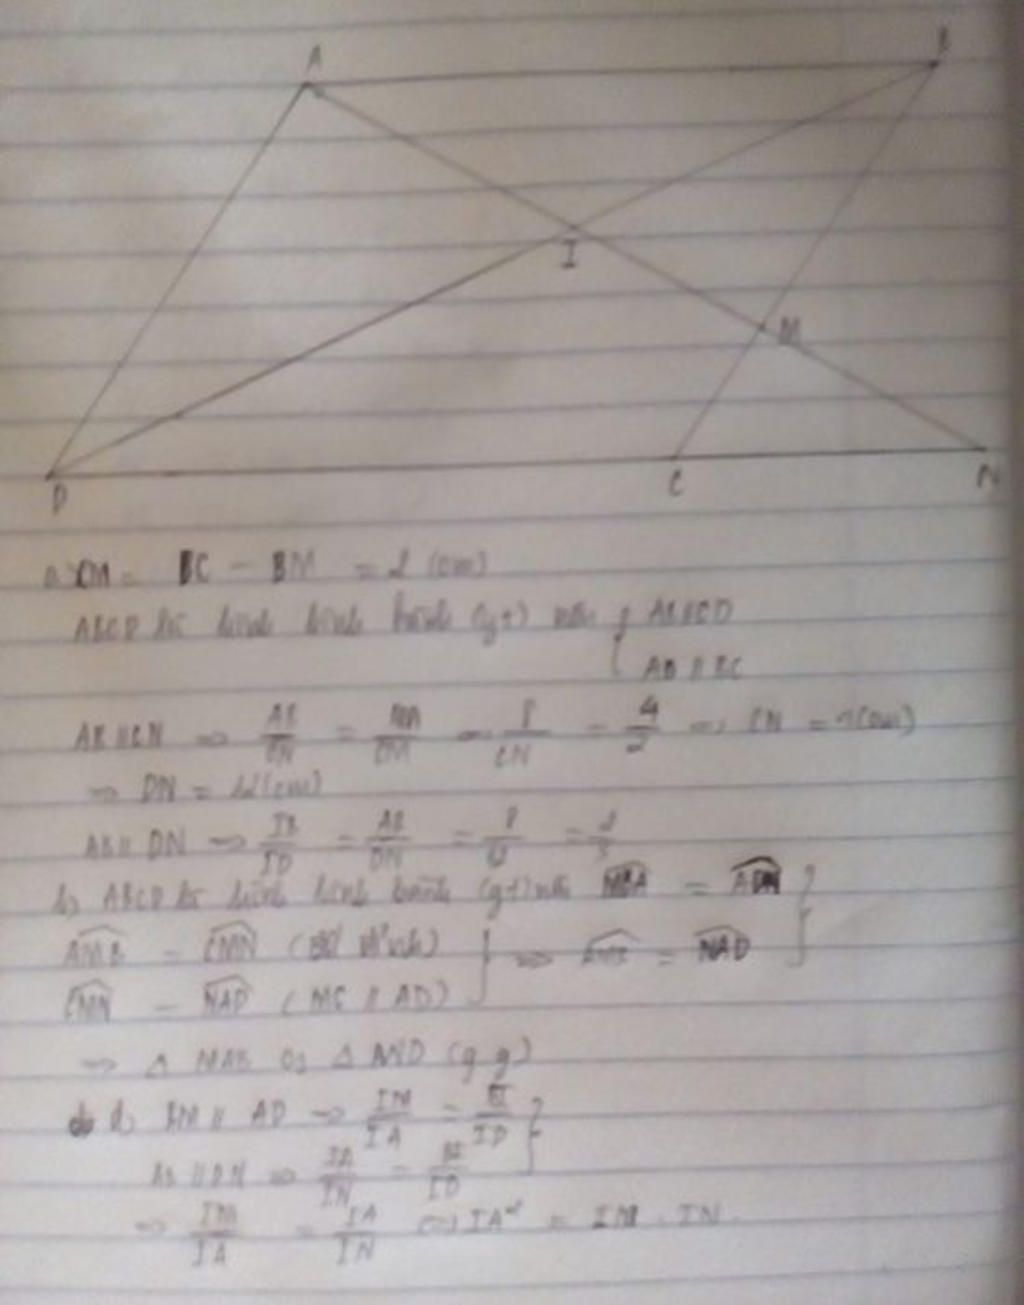 A
B
I
M
D
C
N
a. CM = BC - BM = 2 (cm)
ABCD là hình bình hành (gt) nên { AB // CD
AB // BC
AB // CN => AB/CN = MA/CM = 8/CN = 4/2 => CN = 4(cm)
=> DN = 12(cm)
AB // DN => IB/ID = AB/DN = 8/12 = 2/3
b, ABCD là hình bình hành (gt) nên MBA = ADN }
AMB = CMN (đối đỉnh) }
CMN = NAD (MC // AD) } => AMB = NAD
=> Δ MAB ∽ Δ AND (g.g)
d, BM // AD => IM/IA = BI/ID }
AB // DN => IA/IN = BI/ID
=> IM/IA = IA/IN <=> IA² = IM . IN.